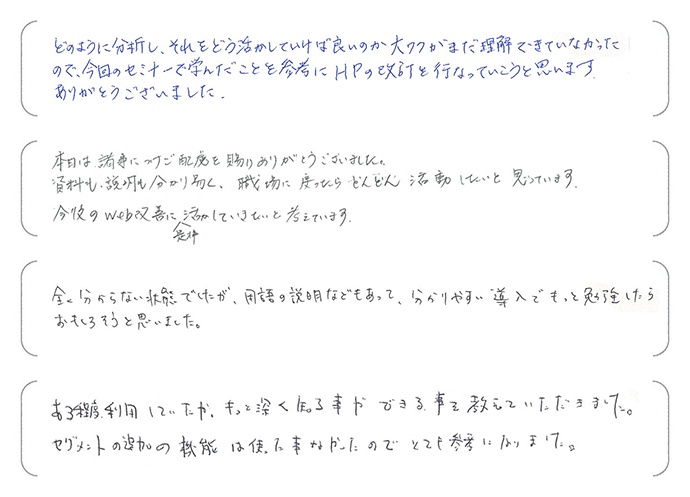 どのように分析し、それをどう活かしていけば良いのか大ワクがまだ理解できていなかった
ので、今回のセミナーで学んだことを参考にHPの改訂を行なっていこうと思います.
ありがとうございました.
本日は、諸事につけご配慮を賜りありがとうございました。
資料も、説明も分かり易く、職場に戻ったらどんどん活動したいと思っています.
今後のweb改善に活かしていきたいと考えています.
是非
全く分からない状態でしたが、用語の説明などもあって、分かりやすい導入でもっと勉強したら
おもしろそうと思いました。
ある程度、利用していたが、もっと深く知る事ができる事を教えていただきました。
セグメントの追加の機能は使った事なかったのでとても参考になりました。